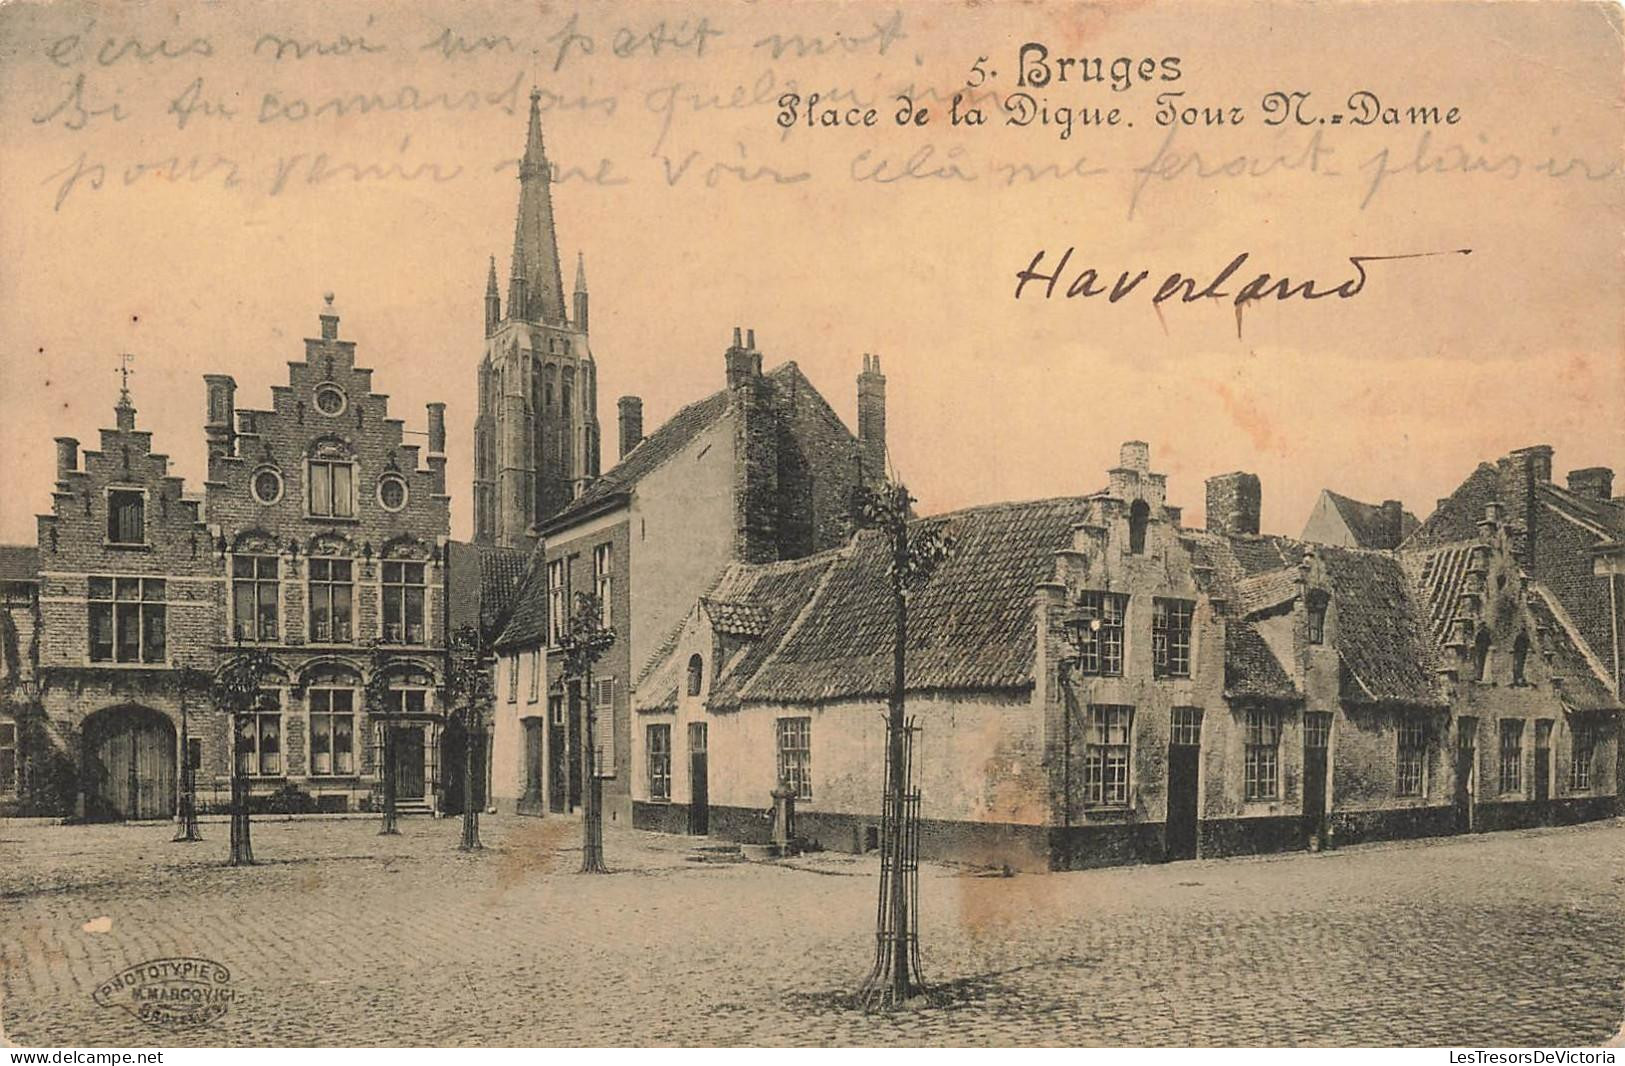 écris moi un patit mot.
Si tu comaissais quelqu'un
pour venir me voir celà me ferait plaisir
5. Bruges
Place de la Digue. Tour N.=Dame
Haverland
PHOTOTYPIE
M. MARCOVICI
BRUXELLES
delcampe.net
LesTresorsDeVictoria